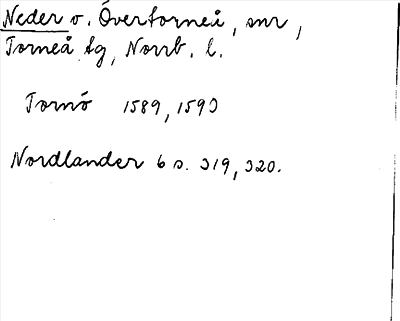 Neder o. Övertorneå, snr,
Torneå tg, Norrb. l.
Tornö 1589, 1593
Nordlander 6 s. 319, 320.